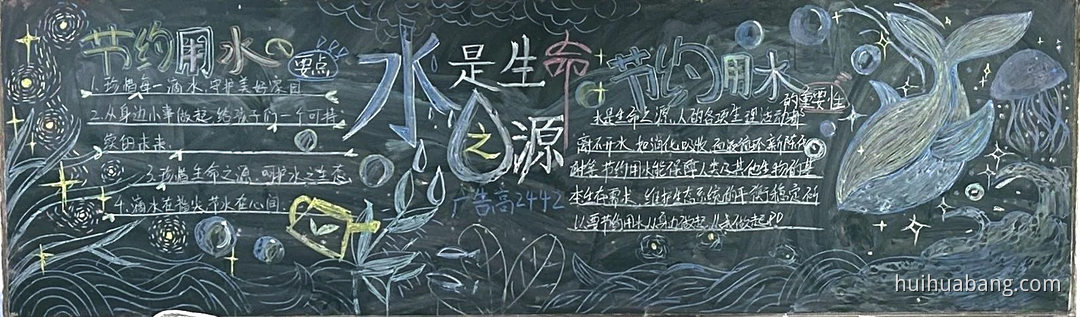 节约用水
要点
1.珍惜每一滴水,守护美好家园
2.从身边小事做起,给孩子们一个可持
续的未来.
3.珍惜生命之源,呵护水之生态
4.滴水在指尖,节水在心间.
水是生命
之源
广告高2442
节约用水
的重要性
水是生命之源,人的各项生理活动都
离不开水,如消化吸收,血液循环,新陈代
谢等.节约用水能保障人类及其他生物的基
本生存需求,维护生态系统的平衡稳定.所
以要节约用水从身边做起,从我做起
huihuabang.com